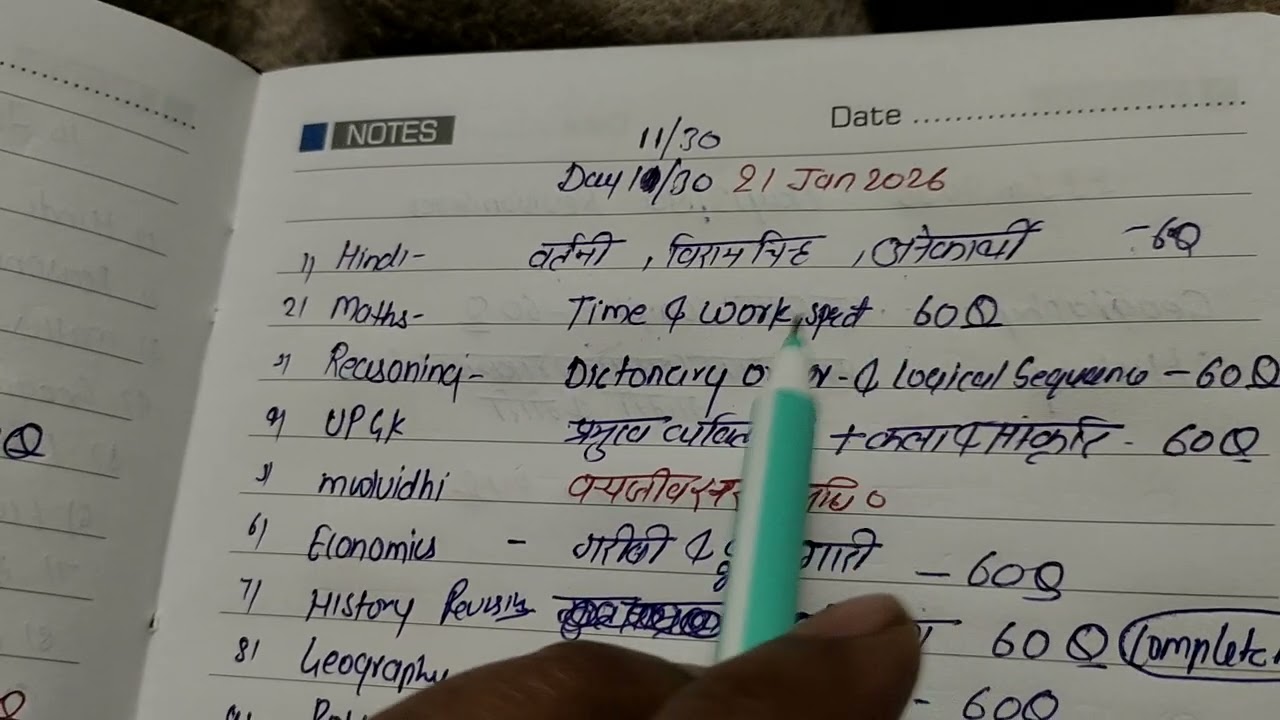 NOTES
Date
11/30
Day 10/30 21 Jan 2026
1) Hindi- वर्तनी , विराम चिह्न , अनेकार्थी - 60Q
2) Maths- Time & work 60Q
3) Reasoning- Dictonary & Logical Sequence - 60Q
4) UPGK प्रमुख + कला & संस्कृति - 60Q
5) mulvidhi
6) Economics - गरीबी & - 60Q
7) History Revision 60Q Complete
8) Geography - 60Q